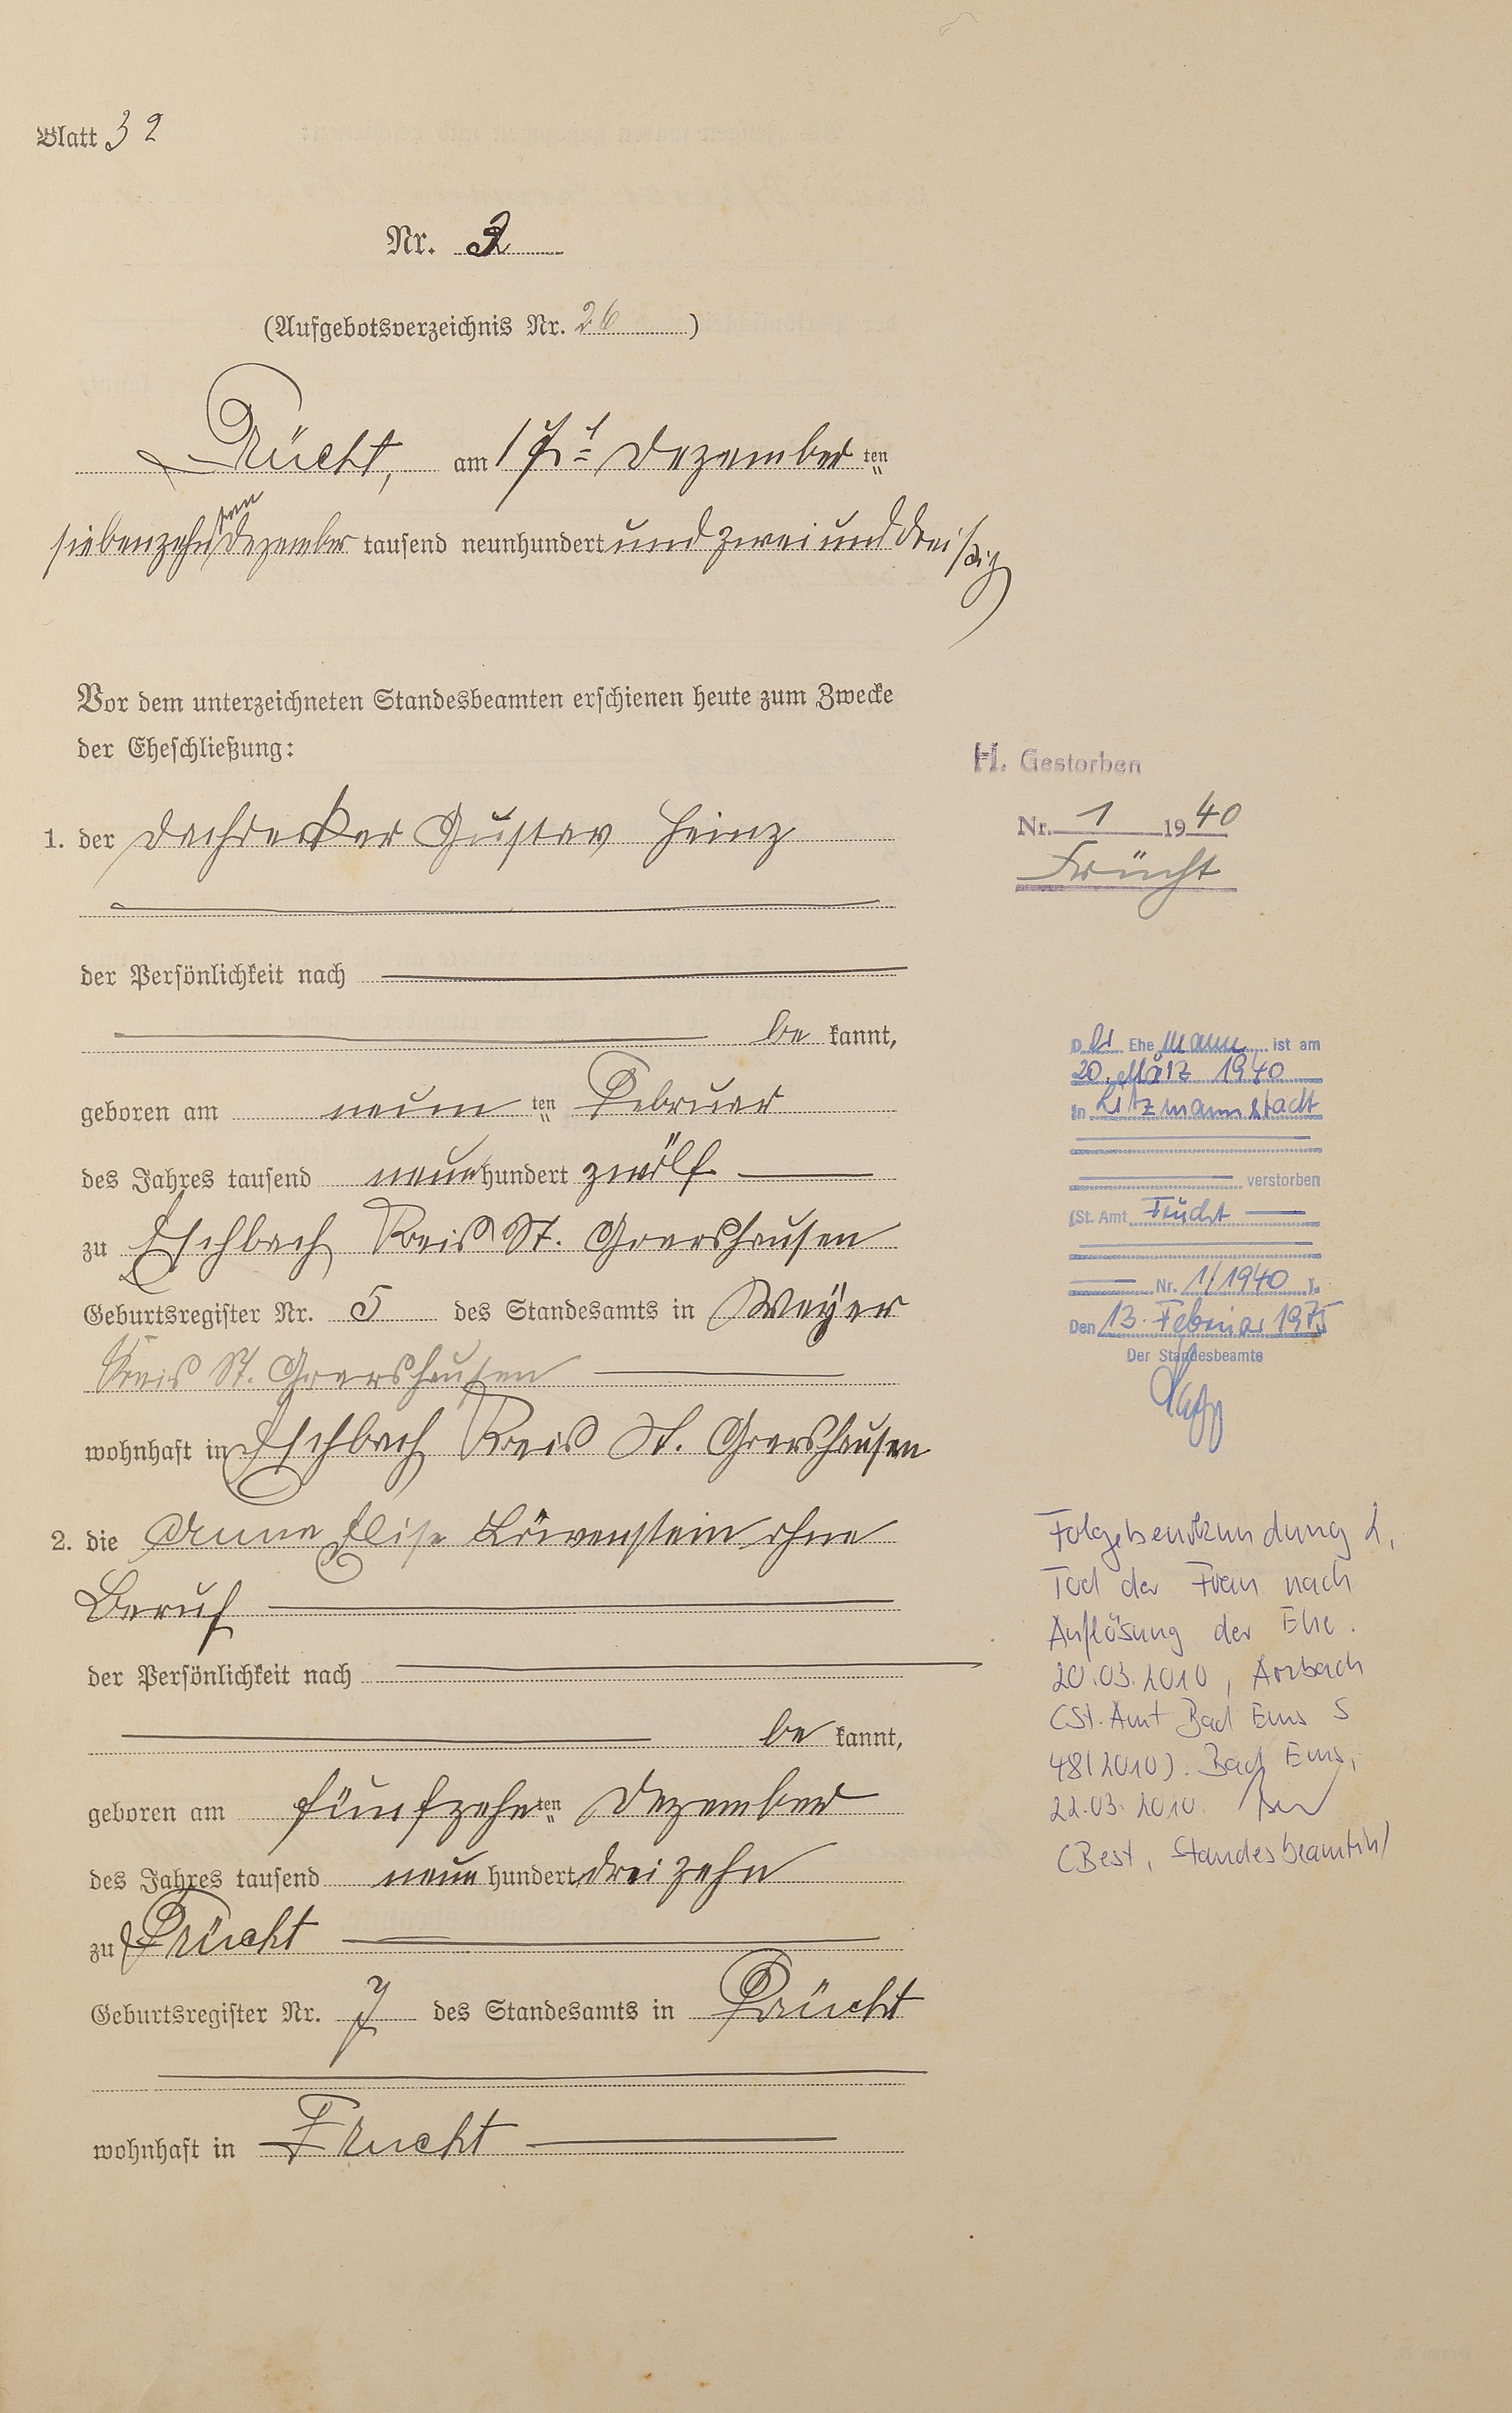 Blatt 32
Nr. 2
(Aufgebotsverzeichnis Nr. 26)
Frücht, am 17. Dezember ten
siebenzehnten Dezember tausend neunhundert und zwei und dreißig
Vor dem unterzeichneten Standesbeamten erschienen heute zum Zwecke
der Eheschließung:
1. der Dachdecker Gustav Heinz
der Persönlichkeit nach
be kannt,
geboren am neun ten Februar
des Jahres tausend neun hundert zwölf
zu Eschbach Kreis St. Goarshausen
Geburtsregister Nr. 5 des Standesamts in Weyer
Kreis St. Goarshausen
wohnhaft in Eschbach Kreis St. Goarshausen
2. die Anna Elise Löwenstein ohne
Beruf
der Persönlichkeit nach
be kannt,
geboren am fünfzehn ten Dezember
des Jahres tausend neun hundert dreizehn
zu Frücht
Geburtsregister Nr. 7 des Standesamts in Frücht
wohnhaft in Frücht
H. Gestorben
Nr. 1 1940
Frücht
Der Ehemann ist am
20. März 1940
in Litzmannstadt
verstorben
(St. Amt Frücht
Nr. 1/1940).
Den 13. Februar 1975
Der Standesbeamte
Folgebeurkundung 2,
Tod der Frau nach
Auflösung der Ehe.
20.03.2010, Arzbach
(St. Amt Bad Ems S
48/2010). Bad Ems,
22.03.2010.
(Best, Standesbeamtin)